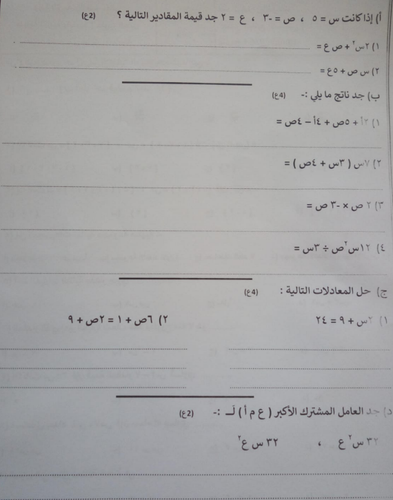 أ) إذا كانت س = ٥ ، ص = -٣ ، ع = ٢ جد قيمة المقادير التالية ؟ (٢ع)
١) ٢س٢ + ص ع =
٢) س ص + ٥ع =
ب) جد ناتج ما يلي :- (٤ع)
١) ٢أ + ٥ص + ٤أ – ٤ص =
٢) ٧س ( ٣س + ٤ص ) =
٣) ٢ ص × -٣ ص =
٤) ١٢س٢ص ÷ ٣س =
ج) حل المعادلات التالية : (٤ع)
١) ٢س + ٩ = ٢٤
٢) ٦ص + ١ = ٢ص + ٩
د) جد العامل المشترك الأكبر ( ع م أ ) لـ :- (٢ع)
س٢ ع ، ٣٢ س ع٢